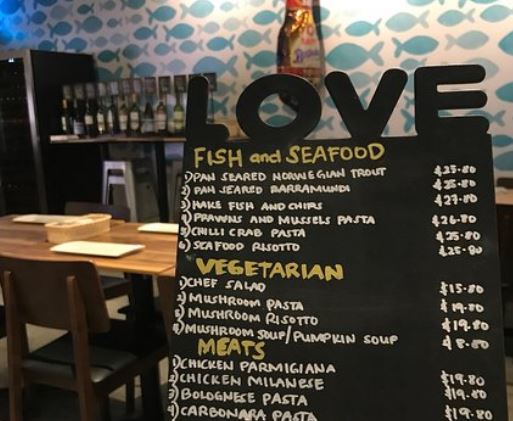 LOVE
FISH and SEAFOOD
1) PAN SEARED NORWEGIAN TROUT $25.80
2) PAN SEARED BARRAMUNDI $25.80
3) HAKE FISH AND CHIPS $27.80
4) PRAWNS AND MUSSELS PASTA $26.80
5) CHILLI CRAB PASTA $25.80
6) SEAFOOD RISOTTO $25.80
VEGETARIAN
1) CHEF SALAD $15.80
2) MUSHROOM PASTA $19.80
3) MUSHROOM RISOTTO $19.80
4) MUSHROOM SOUP/PUMPKIN SOUP $8.80
MEATS
1) CHICKEN PARMIGIANA
2) CHICKEN MILANESE $19.80
3) BOLOGNESE PASTA $19.80
4) CARBONARA PASTA $19.80